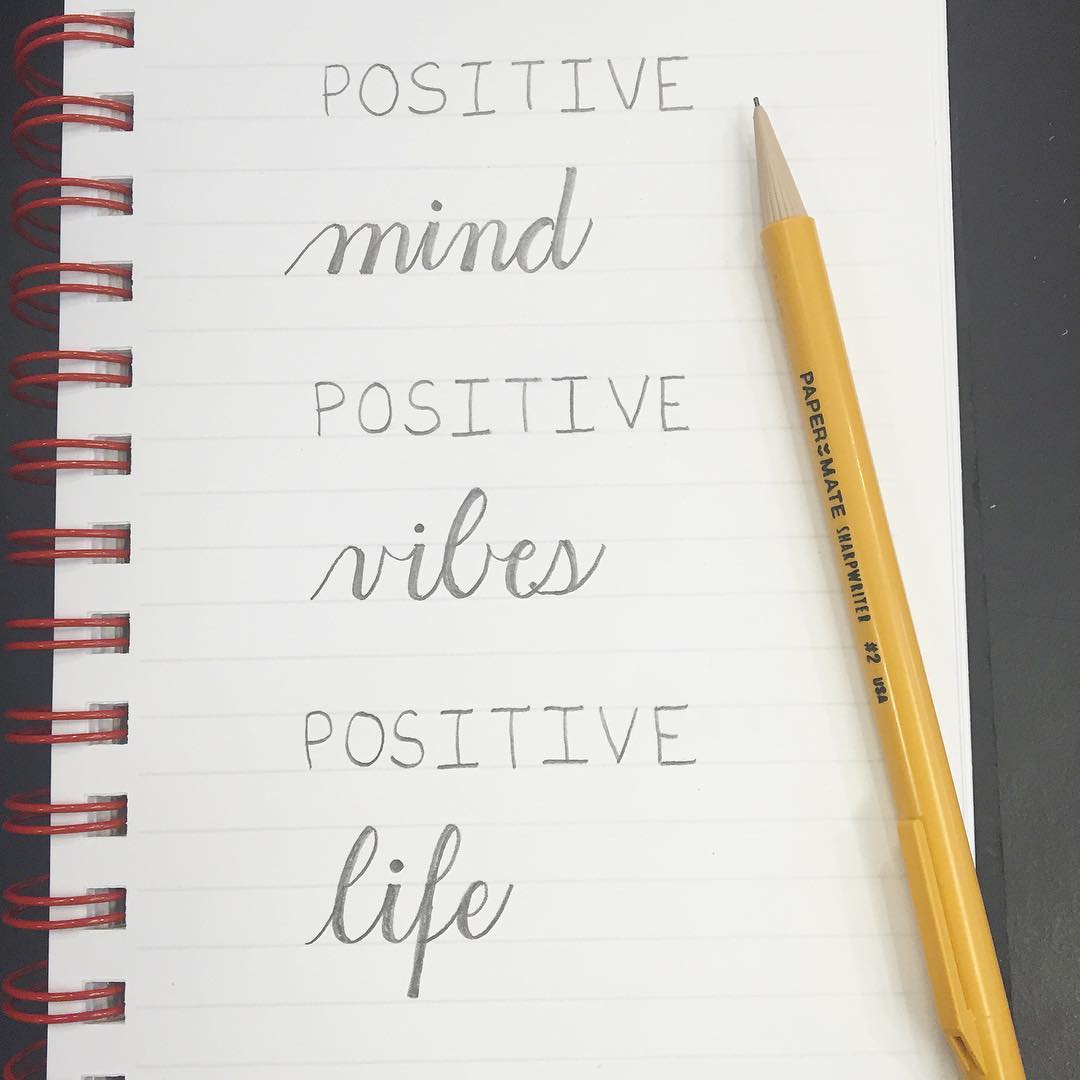 POSITIVE
mind
POSITIVE
vibes
POSITIVE
life
PAPER MATE SHARPWRITER #2 USA